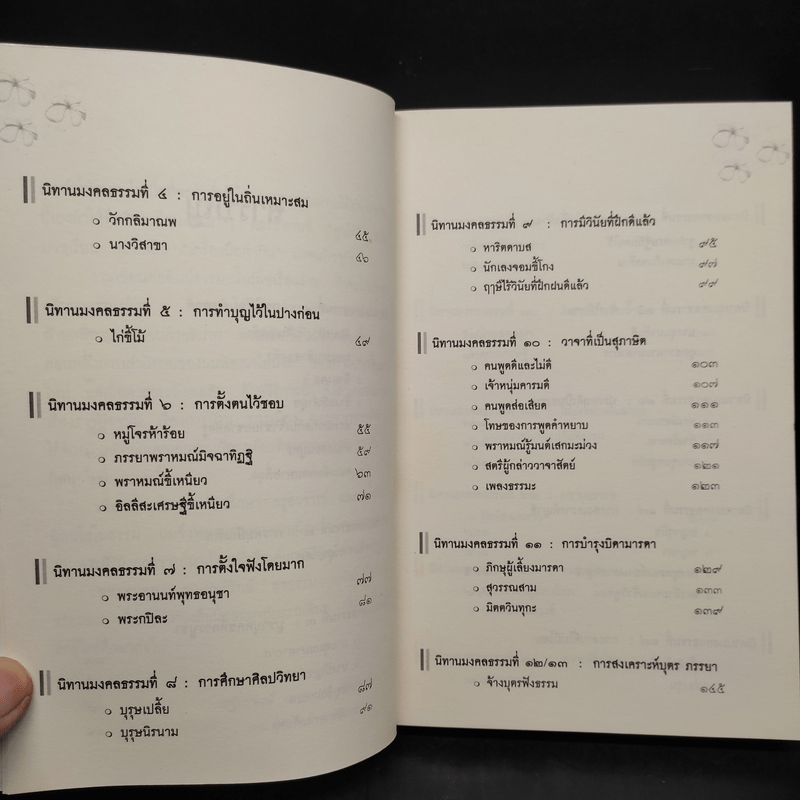 นิทานมงคลธรรมที่ ๔ : การอยู่ในถิ่นเหมาะสม
วักกลิมาณพ ๔๕
นางวิสาขา ๔๖
นิทานมงคลธรรมที่ ๕ : การทำบุญไว้ในปางก่อน
ไก่ขี้โม้ ๔๙
นิทานมงคลธรรมที่ ๖ : การตั้งตนไว้ชอบ
หมู่โจรห้าร้อย ๕๕
ภรรยาพราหมณ์มิจฉาทิฏฐิ ๕๙
พราหมณ์ขี้เหนียว ๖๓
อิลลีสะเศรษฐีขี้เหนียว ๗๑
นิทานมงคลธรรมที่ ๗ : การตั้งใจฟังโดยมาก
พระอานนท์พุทธอนุชา ๗๗
พระกปิละ ๘๑
นิทานมงคลธรรมที่ ๘ : การศึกษาศิลปวิทยา
บุรุษเปลี้ย ๘๗
บุรุษนิรนาม ๙๑
นิทานมงคลธรรมที่ ๙ : การมีวินัยที่ฝึกดีแล้ว
หาริตดาบส ๙๕
นักเลงจอมขี้โกง ๙๗
ฤๅษีไร้วินัยที่ฝึกฝนดีแล้ว ๙๙
นิทานมงคลธรรมที่ ๑๐ : วาจาที่เป็นสุภาษิต
คนพูดดีและไม่ดี ๑๐๓
เจ้าหนุ่มคารมดี ๑๐๗
คนพูดส่อเสียด ๑๑๑
โทษของการพูดคำหยาบ ๑๑๓
พราหมณ์รู้มนต์เสกมะม่วง ๑๑๗
สตรีผู้กล่าววาจาสัตย์ ๑๒๑
เพลงธรรมะ ๑๒๓
นิทานมงคลธรรมที่ ๑๑ : การบำรุงบิดามารดา
ภิกษุผู้เลี้ยงมารดา ๑๒๙
สุวรรณสาม ๑๓๓
มิตตวินทุกะ ๑๓๙
นิทานมงคลธรรมที่ ๑๒/๑๓ : การสงเคราะห์บุตร ภรรยา
จ้างบุตรฟังธรรม ๑๔๕